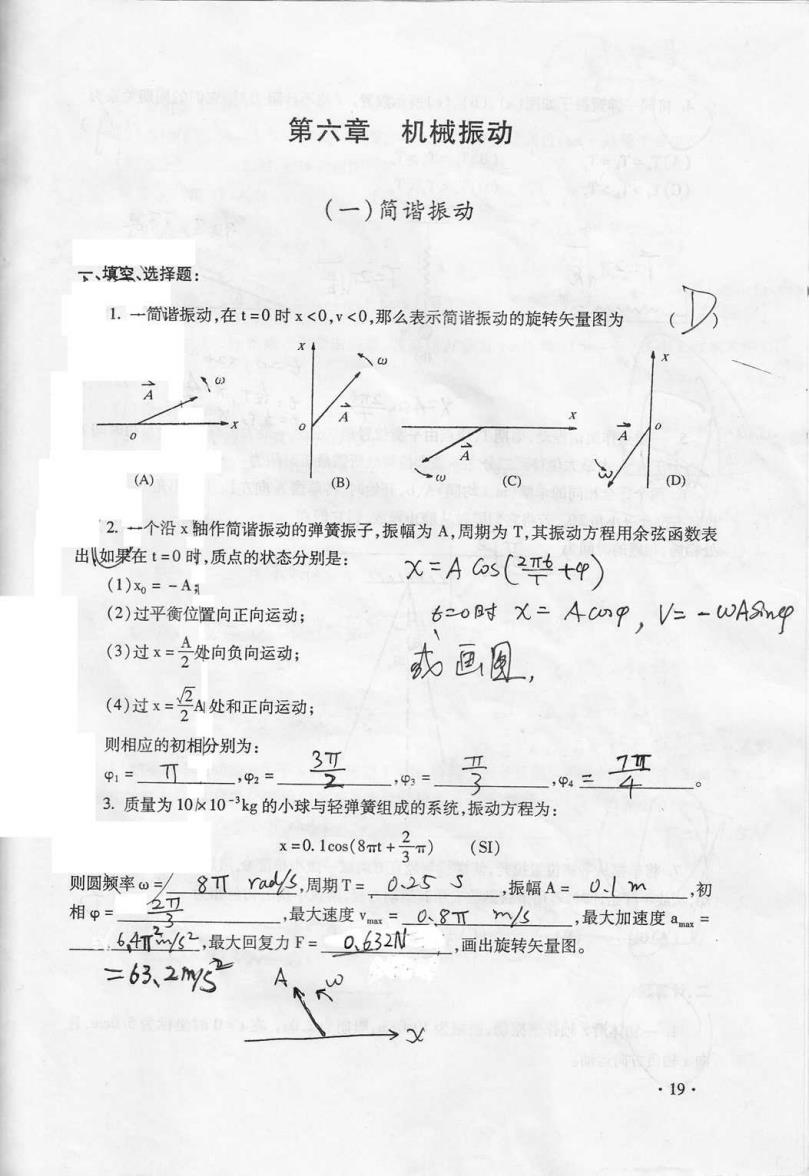 第六章 机械振动
(一)简谐振动
一、填空、选择题:
1. 一简谐振动,在t=0时x<0,v<0,那么表示简谐振动的旋转矢量图为 (D)
A ω x o
(A)
x ω A o
(B)
x A ω
(C)
x A o ω
(D)
2. 一个沿x轴作简谐振动的弹簧振子,振幅为A,周期为T,其振动方程用余弦函数表
出,如果在t=0时,质点的状态分别是:
x=A cos(2πt/T+φ)
(1)x₀=-A;
(2)过平衡位置向正向运动;
t=0时 x=Acosφ, V=-ωAsinφ
(3)过x=A/2处向负向运动;
或画图,
(4)过x=√2/2A处和正向运动;
则相应的初相分别为:
φ₁=π,φ₂=3π/2,φ₃=π/3,φ₄=7π/4。
3. 质量为10×10⁻³kg的小球与轻弹簧组成的系统,振动方程为:
x=0.1cos(8πt+2/3π) (SI)
则圆频率ω=8π rad/s,周期T=0.25 s,振幅A=0.1m,初
相φ=2π/3,最大速度vmax=0.8π m/s,最大加速度amax=
6.4π²m/s²,最大回复力F=0.632N,画出旋转矢量图。
=63.2m/s²
A ω
x
·19·